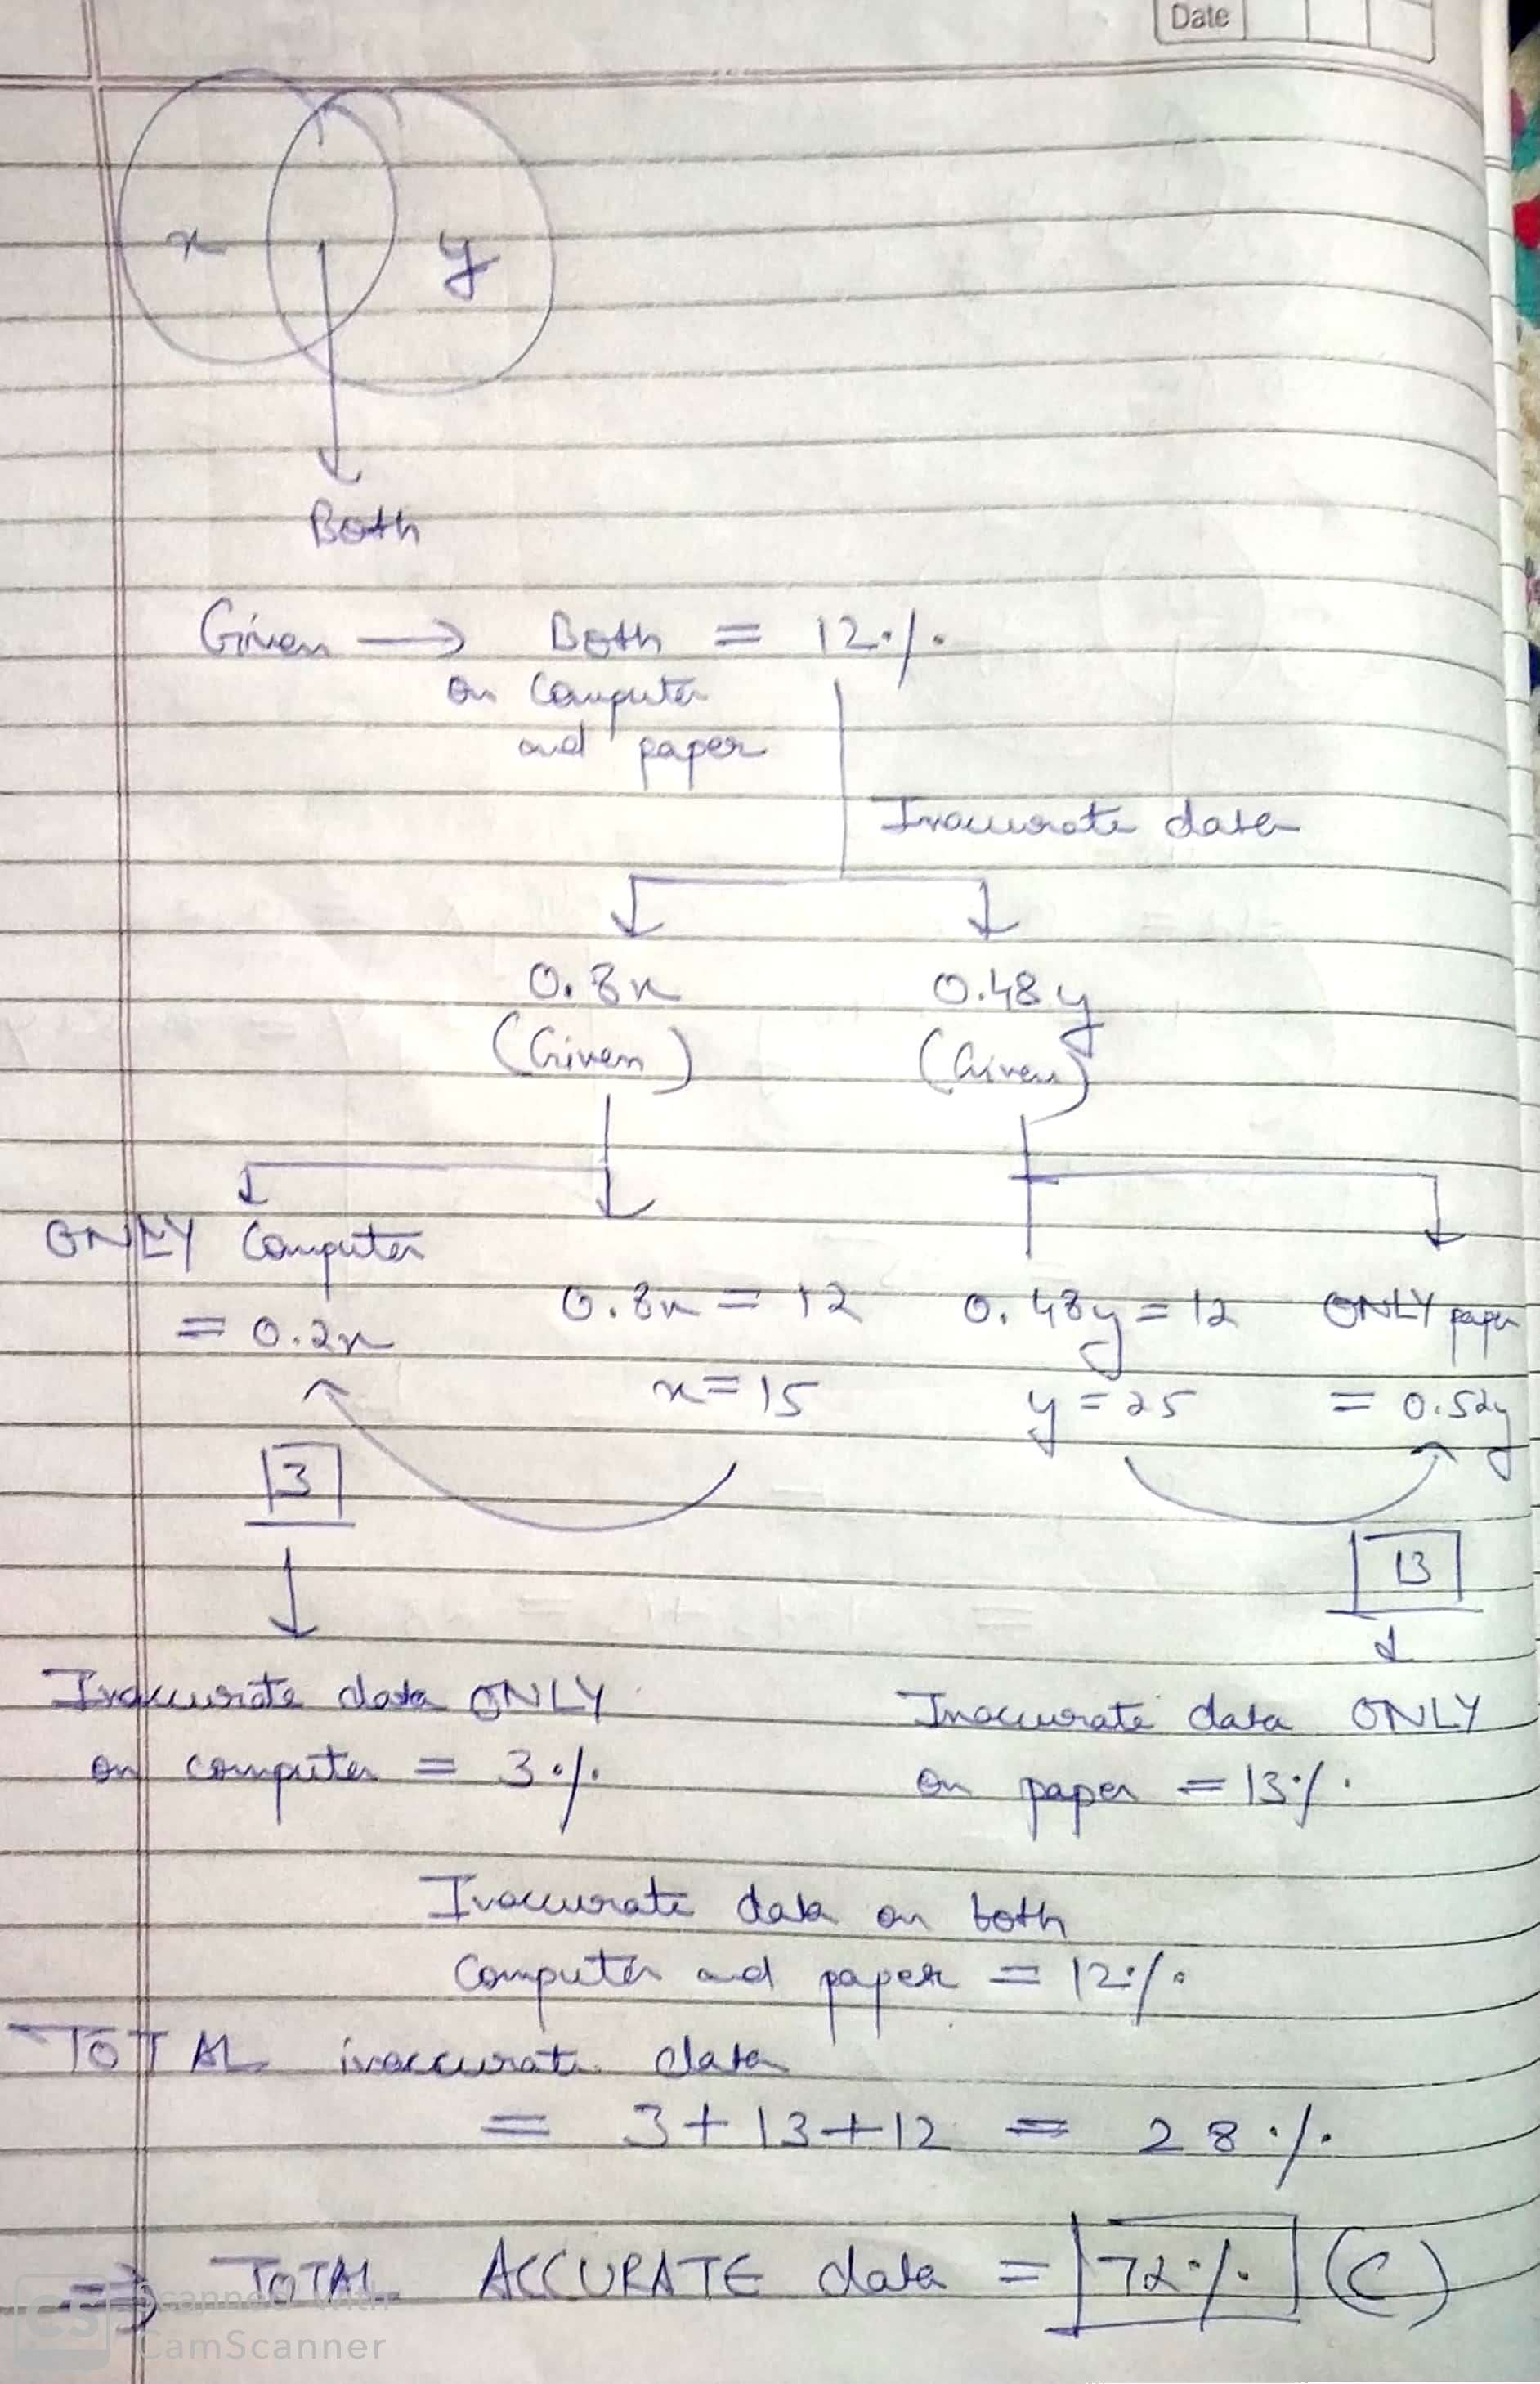 Date
x y
Both
Given → Both = 12%
on Computer
and paper
Inaccurate data
0.8x 0.48y
(Given) (Given)
ONLY Computer
= 0.2x
0.8x = 12 0.48y = 12 ONLY paper
x = 15 y = 25 = 0.52y
3
13
Inaccurate data ONLY
on computer = 3%
Inaccurate data ONLY
on paper = 13%.
Inaccurate data on both
computer and paper = 12%
TOTAL inaccurate data
= 3 + 13 + 12 = 28%
⇒ TOTAL ACCURATE data = 72% (C)
CS Scanned with
CamScanner